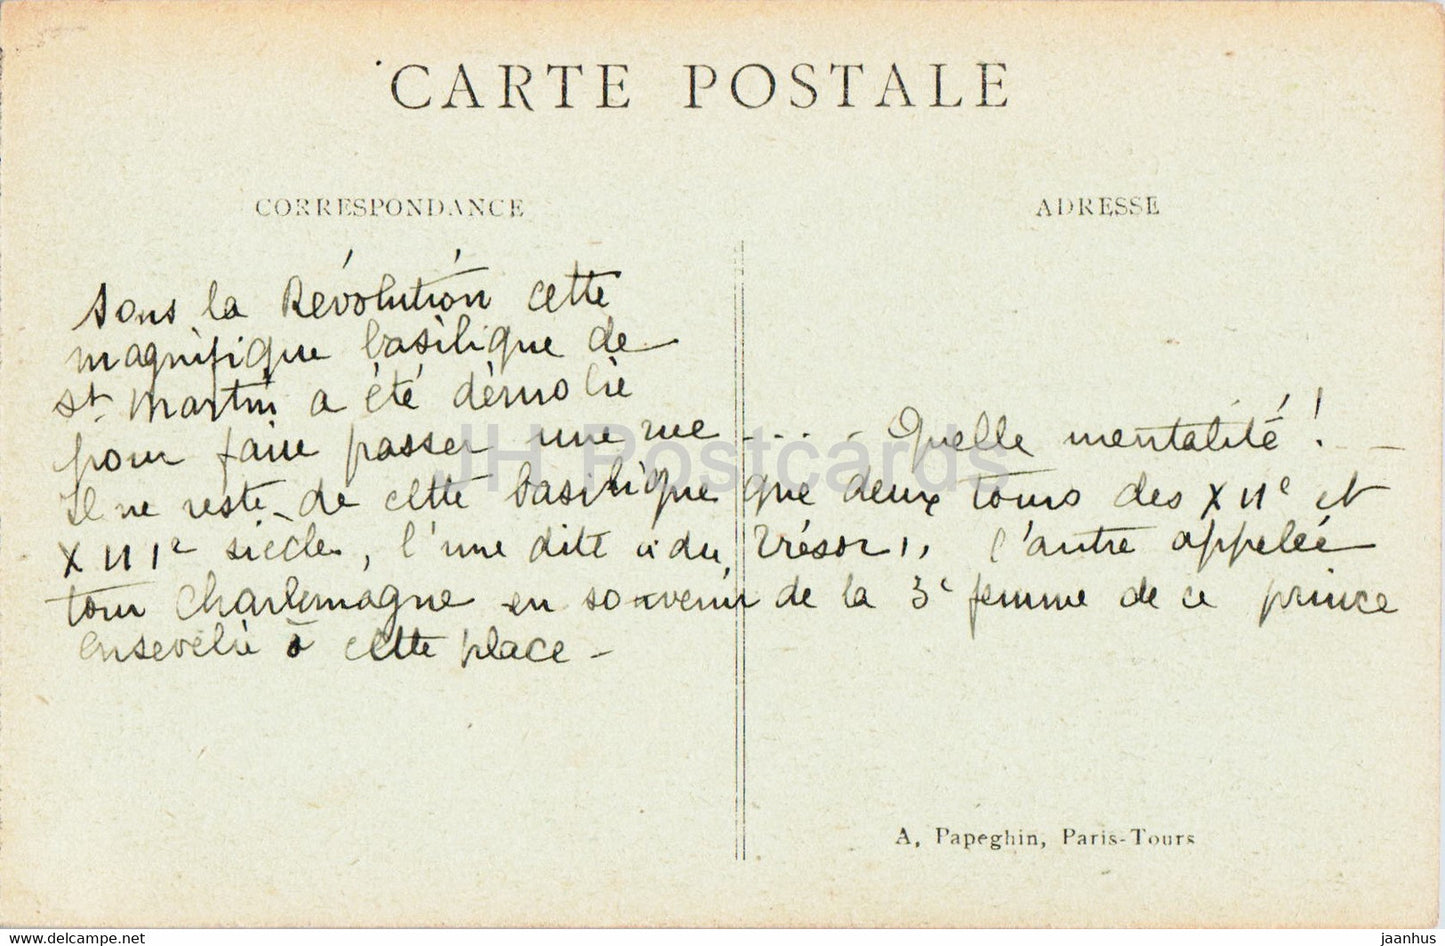 CARTE POSTALE
CORRESPONDANCE
ADRESSE
Sous la Révolution cette
magnifique basilique de
St Martin a été démolie
pour faire passer une rue - . . . - Quelle mentalité ! -
Il ne reste de cette basilique que deux tours des XIIe et
XIIIe siècles, l'une dite "du Trésor", l'autre appelée
tour Charlemagne en souvenir de la 3e femme de ce prince
ensevelie à cette place -
JH Postcards
A. Papeghin, Paris-Tours
www.hippostcard.com/store/jh-postcards
jaanhus